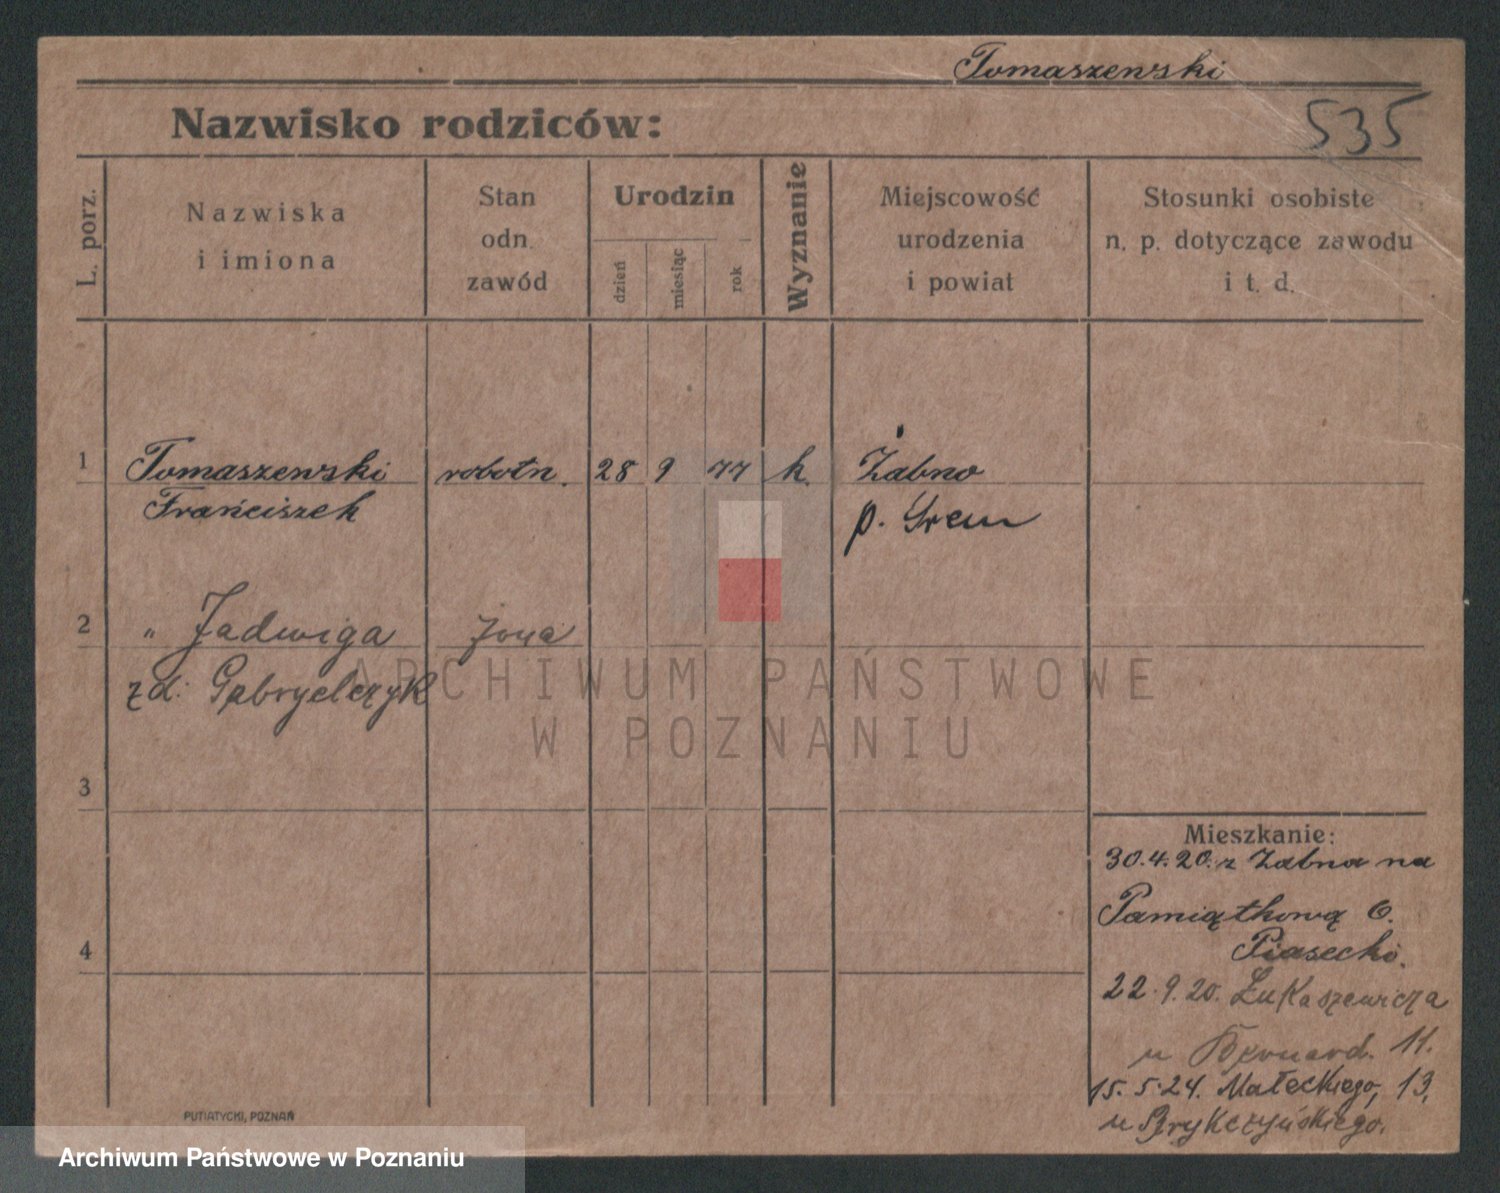 Tomaszewski
Nazwisko rodziców:
535
L. porz.
Nazwiska
i imiona
Stan
odn.
zawód
Urodzin
dzień
miesiąc
rok
Wyznanie
Miejscowość
urodzenia
i powiat
Stosunki osobiste
n. p. dotyczące zawodu
i t. d.
1 Tomaszewski robotn. 28 9 77 k. Żabno
Franciszek p. Śrem
2 " Jadwiga żona
zd. Gabryelczyk
ARCHIWUM PAŃSTWOWE
W POZNANIU
3
Mieszkanie:
30.4.20. z Żabna na
Pamiątkową 6.
Piasecki.
4
22.9.20. Łukaszewicza
u Bernard. 11.
15.5.24. Małeckiego, 13,
u
PUTIATYCKI, POZNAŃ
Archiwum Państwowe w Poznaniu